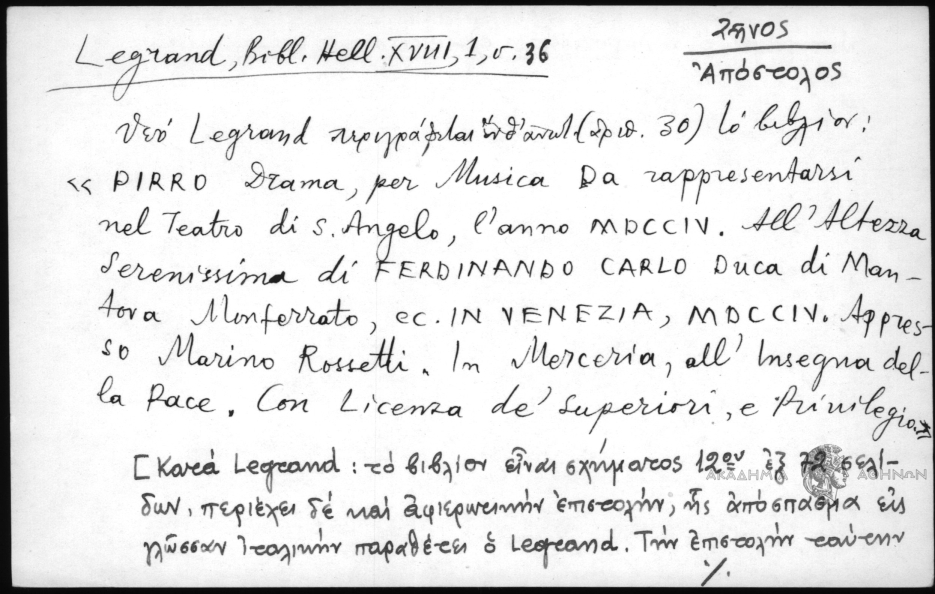 Legrand, Bibl. Hell. XVIII, 1, σ. 36
Ζῆνος
Ἀπόστολος
Ὑπό Legrand περιγράφεται ἐνταῦθα (ἀριθ. 30) τό βιβλίον:
« PIRRO Drama, per Musica Da rappresentarsi
nel Teatro di S. Angelo, l'anno MDCCIV. All'Altezza
Serenissima di FERDINANDO CARLO Duca di Man-
tova Monferrato, ec. IN VENEZIA, MDCCIV. Appres-
so Marino Rossetti. In Merceria, all'Insegna del-
la Pace. Con Licenza de' Superiori, e Privilegio.»
[Κατά Legrand: τό βιβλίον εἶναι σχήματος 12ου ἐξ 72 σελί-
δων, περιέχει δέ καί ἀφιερωτικήν ἐπιστολήν, ἧς ἀπόσπασμα εἰς
γλῶσσαν ἰταλικήν παραθέτει ὁ Legrand. Τήν ἐπιστολήν ταύτην
./.
ΑΚΑΔΗΜΙΑ ΑΘΗΝΩΝ